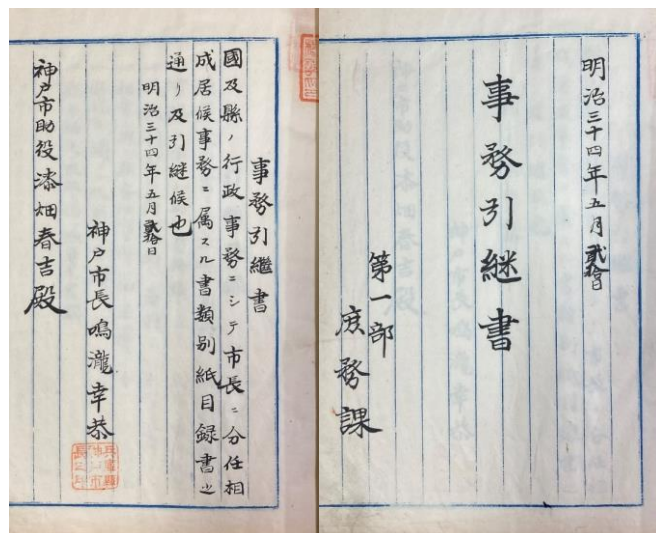 明治三十四年五月貳拾日
事務引継書
第一部
庶務課
事務引繼書
國及縣ノ行政事務ニシテ市長ニ分任相
成居候事務ニ属スル書類別紙目録書之
通リ及引継候也
明治三十四年五月貳拾日
神戸市長鳴瀧幸恭
神戸市助役漆畑春吉殿